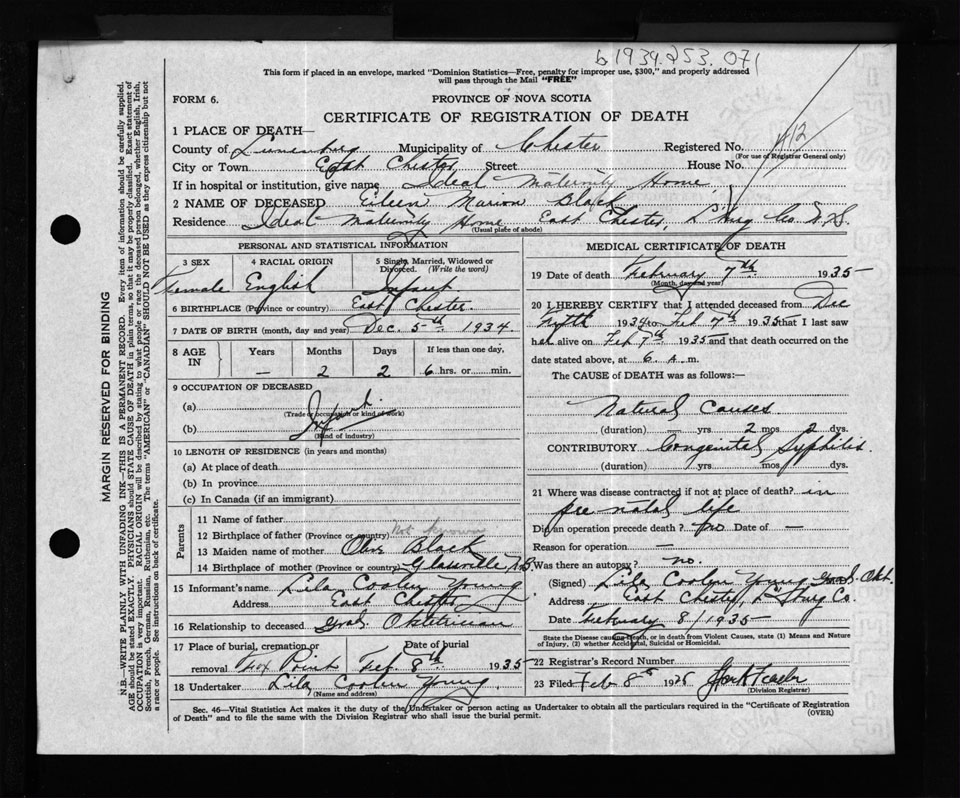 b 1934.253.071
This form if placed in an envelope, marked "Dominion Statistics—Free, penalty for improper use, $300," and properly addressed
will pass through the Mail "FREE"
FORM 6.
PROVINCE OF NOVA SCOTIA
CERTIFICATE OF REGISTRATION OF DEATH
1 PLACE OF DEATH—
County of Lunenburg Municipality of Chester Registered No. 412
(For use of Registrar General only)
City or Town East Chester Street House No.
If in hospital or institution, give name Ideal Maternity Home
2 NAME OF DECEASED Eileen Marion Black
Residence Ideal Maternity Home East Chester, L'burg Co. N.S.
(Usual place of abode)
PERSONAL AND STATISTICAL INFORMATION
3 SEX 4 RACIAL ORIGIN 5 Single, Married, Widowed or
Divorced. (Write the word)
Female English Infant
6 BIRTHPLACE (Province or country) East Chester.
7 DATE OF BIRTH (month, day and year) Dec. 5th 1934
8 AGE IN Years Months Days If less than one day,
— 2 2 6 hrs. or min.
9 OCCUPATION OF DECEASED
(a) Infant
(Trade or occupation or kind of work)
(b)
(Kind of industry)
10 LENGTH OF RESIDENCE (in years and months)
(a) At place of death
(b) In province
(c) In Canada (if an immigrant)
Parents
11 Name of father
12 Birthplace of father (Province or country) Not known
13 Maiden name of mother Black
14 Birthplace of mother (Province or country) Glassville N.B.
15 Informant's name Lila Coolen Young
Address East Chester
16 Relationship to deceased Grad. Obstetrician
17 Place of burial, cremation or Date of burial
removal Fox Point Feb. 8th 1935
18 Undertaker Lila Coolen Young
(Name and address)
MEDICAL CERTIFICATE OF DEATH
19 Date of death February 7th 1935
(Month, day and year)
20 I HEREBY CERTIFY that I attended deceased from Dec
Fifth 1934 to Feb 7th 1935 that I last saw
her alive on Feb 7th 1935 and that death occurred on the
date stated above, at 6 a. m.
The CAUSE of DEATH was as follows:—
Natural Causes
(duration) — yrs 2 mos 2 dys.
CONTRIBUTORY Congenital Syphilis
(duration) yrs mos dys.
21 Where was disease contracted if not at place of death? in
pre natal life
Did an operation precede death? no Date of —
Reason for operation —
Was there an autopsy? no.
(Signed) Lila Coolen Young Grad. Obt.
Address East Chester, L'burg Co.
Date February 8/1935
State the Disease causing Death, or in death from Violent Causes, state (1) Means and Nature
of Injury, (2) whether Accidental, Suicidal or Homicidal.
22 Registrar's Record Number
23 Filed Feb 8th 1935
(Division Registrar)
Sec. 46—Vital Statistics Act makes it the duty of the Undertaker or person acting as Undertaker to obtain all the particulars required in the "Certificate of Registration
of Death" and to file the same with the Division Registrar who shall issue the burial permit.
(OVER)
MARGIN RESERVED FOR BINDING
N.B.—WRITE PLAINLY WITH UNFADING INK—THIS IS A PERMANENT RECORD. Every item of information should be carefully supplied.
AGE should be stated EXACTLY. PHYSICIANS should STATE CAUSE OF DEATH in plain terms, so that it may be properly classified. Exact statement of
OCCUPATION is very important. RACIAL ORIGIN will be described by stating to what people or race the deceased person belonged, whether English, Irish,
Scottish, French, German, Russian, Ruthenian, etc. The terms "AMERICAN" or "CANADIAN" SHOULD NOT BE USED as they express citizenship but not
a race or people. See instructions on back of certificate.